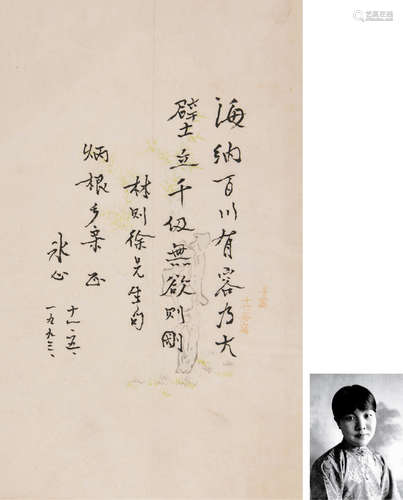 海纳百川有容为大
壁立千仞無欲则刚
林则徐先生句
炳根乡亲正
冰心
十一、五、
一九九三、
艺典中国